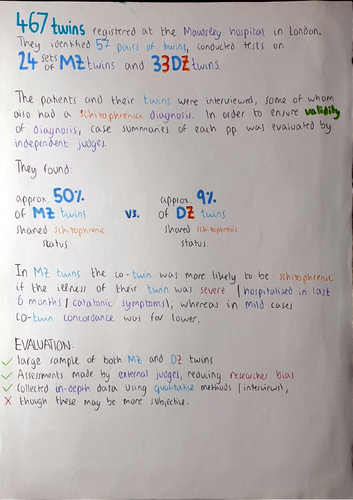 467 twins registered at the Maudsley hospital in London.
They identified 57 pairs of twins, conducted tests on
24 sets of MZ twins and 33 DZ twins.
The patients and their twins were interviewed, some of whom
also had a schizophrenica diagnosis. In order to ensure validity
of diagnosis, case summaries of each pp. was evaluated by
independent judges.
They found:
approx. 50%
of MZ twins
shared schizophrenic
status
vs.
approx. 9%
of DZ twins
shared schizophrenic
status.
In MZ twins the co-twin was more likely to be schizophrenic
if the illness of their twin was severe (hospitalised in last
6 months / catatonic symptoms); whereas in mild cases
co-twin concordance was far lower.
EVALUATION:
✓ large sample of both MZ and DZ twins
✓ Assessments made by external judges, reducing researcher bias
✓ Collected in-depth data using qualitative methods (interviews),
✗ though these may be more subjective.